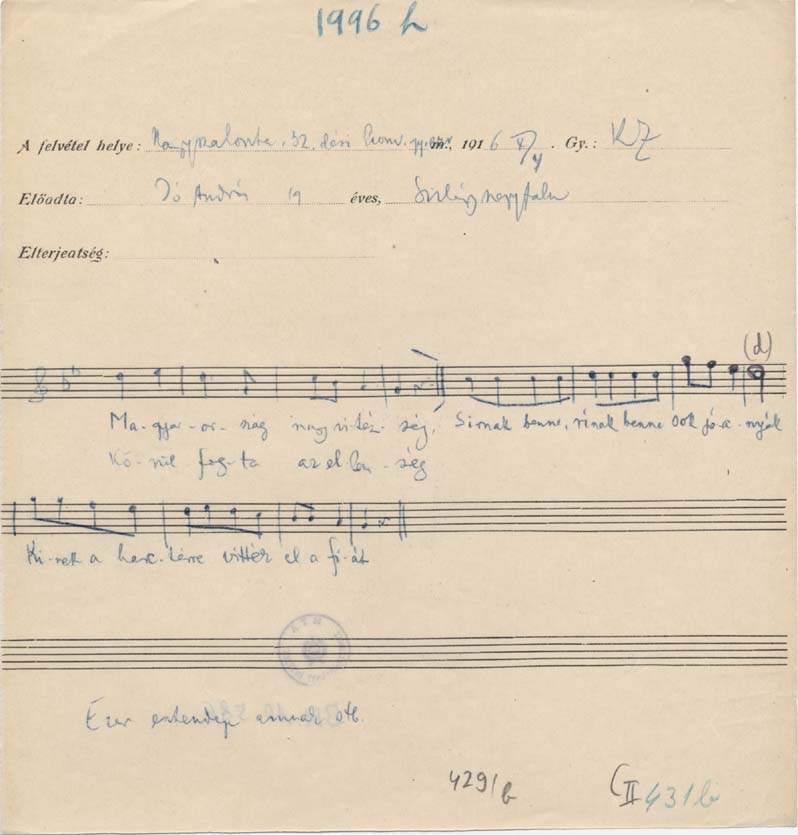 1996 h
A felvétel helye: Nagyszalonta. 32. dési honv. m., 1916 X/4. Gy.: KZ
Előadta: András 19 éves, Szilágynagyfalu
Elterjeatség:
(d)
Ma-gyar-or-ság nagy vitéz-ség, Sirnak benne, rínak benne sok jó a-nyák
Kö-rül fog-ta az el-len-ség
Ki-nek a harc-térre vitték el a fi-át
Ezer
429/b
II 431b